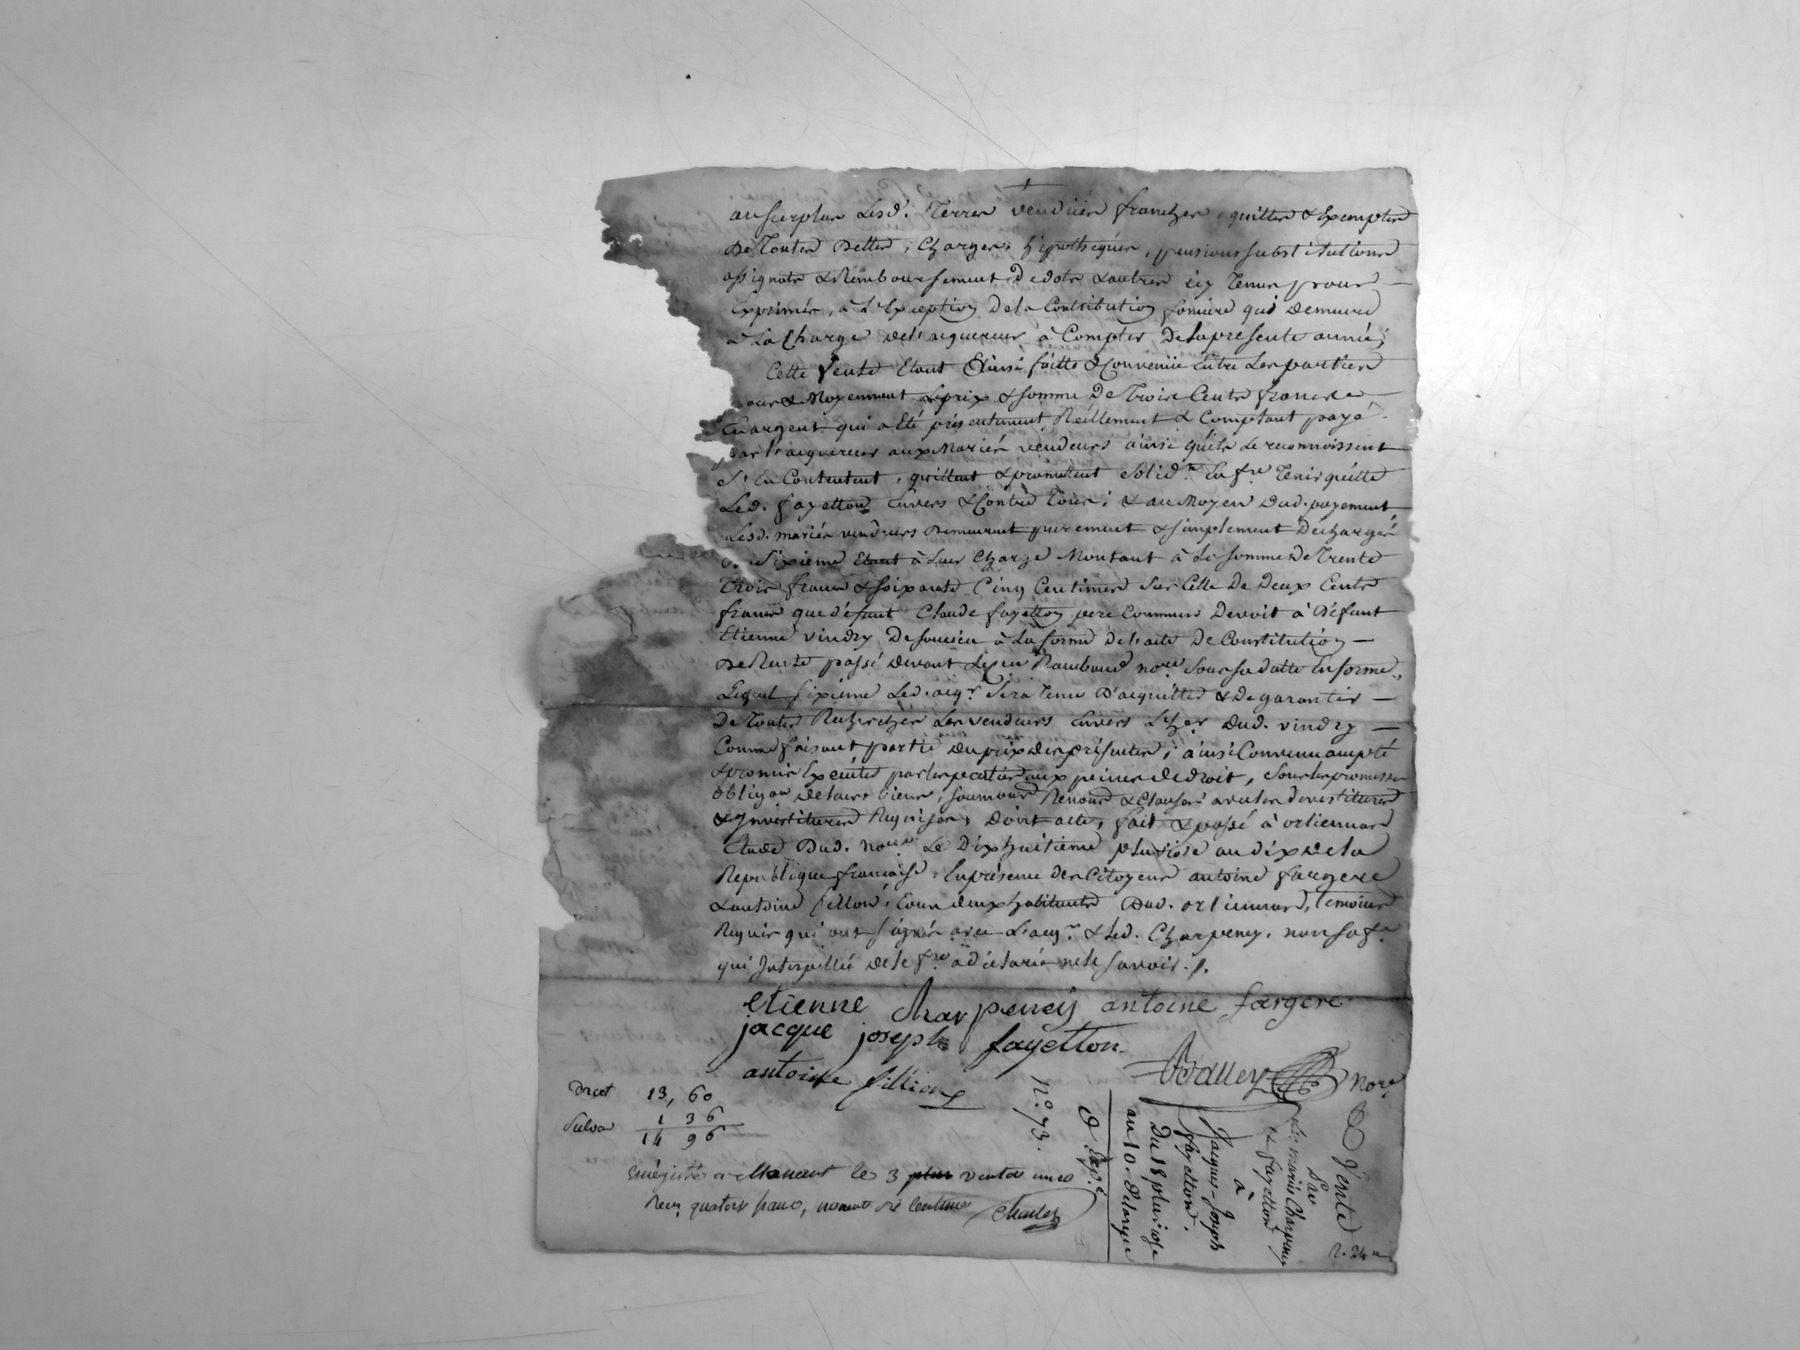 au surplus lesd. Terres venduës franches, quittes & Exemptes
de Toutes dettes, charges, hipothequës, pensions substitutions
assignats & Remboursement de dots & autres icy tenus pour
Exprimés, à L'Exception de la Contribution fonciere qui demeure
à La Charge de l'acquereur à Compter de la presente année;
Cette Vente Etant Ainsi faitte & Convenuë Entre Les parties
pour & Moyennant Le prix & somme de Trois Cents francs
En argent qui a Eté présentement Réellement & Comptant payé
par l'acquereur aux Mariés vendeurs ainsi qu'ils Le reconnoissent
s'En Contentent, quittent & promettent solid.re En f.re Tenir quitte
Led. fayetton Envers & Contre Tous; & au Moyen dud. payement
Lesd. mariés vendeurs demeurent purement & simplement Déchargés
du sixieme Etant à Leur Charge Montant à La somme de Trente
Trois francs & soixante Cinq Centimes sur Celle De Deux Cents
francs que défunt Claude fayetton pere Commun Devoit à Défunt
Etienne vindry De soucieu à La forme de l'acte De Constitution
De Rente passé devant Les feu Rambaud no.re sous sa datte En forme,
Lequel sixieme Led. acq.r sera Tenu D'acquitter & De garantir
De Toutes Recherches Les vendeurs Envers L'her. dud. vindry
Comme faisant partie du prix des présentes; ainsi Convenu accepté
& promis Exécuter par les parties aux peines de droit, sous les promesses
obligaôn de leurs biens, soumission Renonc. & Clauses avec les devestitures
& Jnvestitures Requises, dont acte, fait & passé à orliennas
Etude Dud. no.re Le Dixhuitieme pluviose an dix de la
Republique francaise, En présence des Citoyens antoine fargere
& antoine fillion, tous deux habitants Dud. orliennas, temoins
Requis qui ont signés avec L'acq.r & Led. Charpeney, non sa f.e
qui Interpellée de le f.re a déclaré ne le savoir ./.
etienne charpeney antoine fargere
jacque joseph fayetton
antoine fillion
no.re
Droit 13, 60
Subv.n 1 36
14 96
Enrégistré à Mornant le 3 ventose an 10
Reçu quatorze francs, nonante six centimes
N.o 73.
Exp.é
Du 18 pluviose
an 10. de la rep.
Jacques-Joseph
fayetton.
à
Les mariés Charpeney
& fayetton
Par
Vente
R. 24